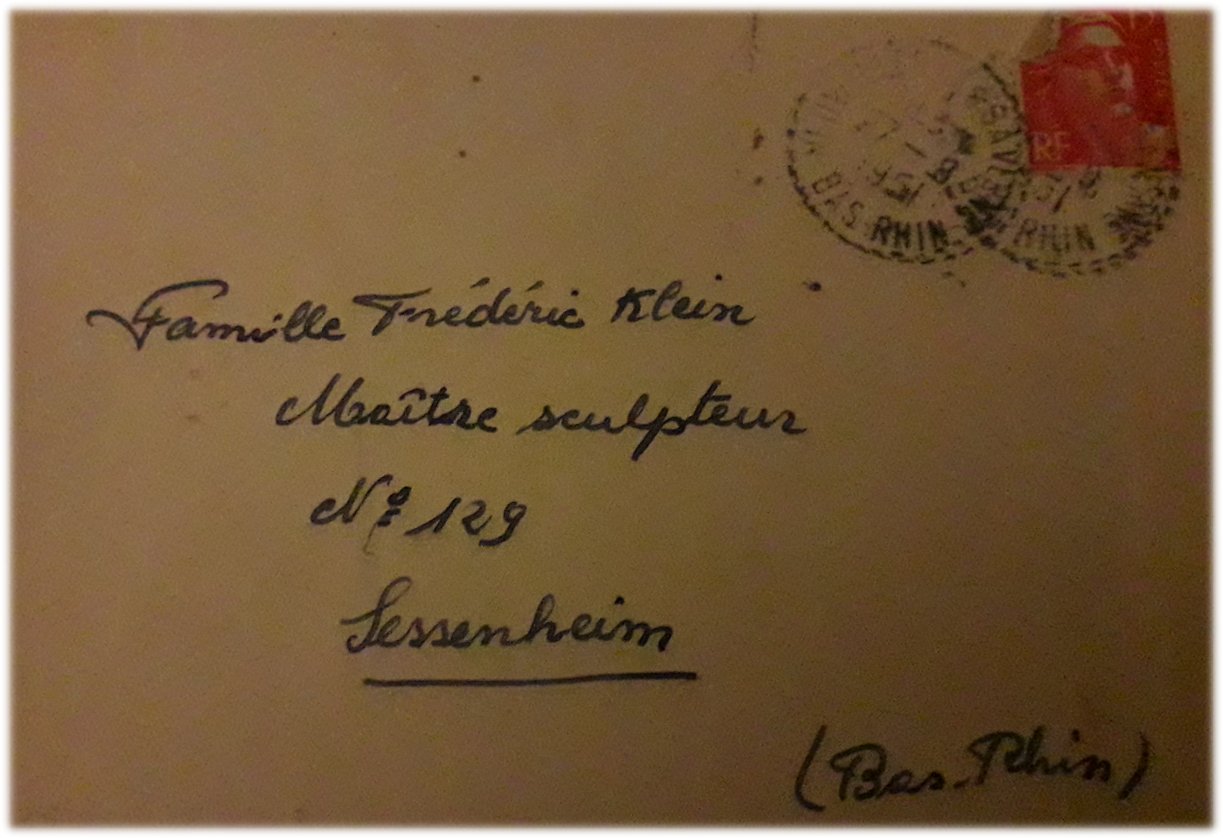 RF
BAS RHIN
RHIN
Famille Frédéric Klein
Maître sculpteur
Nº 129
Sessenheim
(Bas-Rhin)